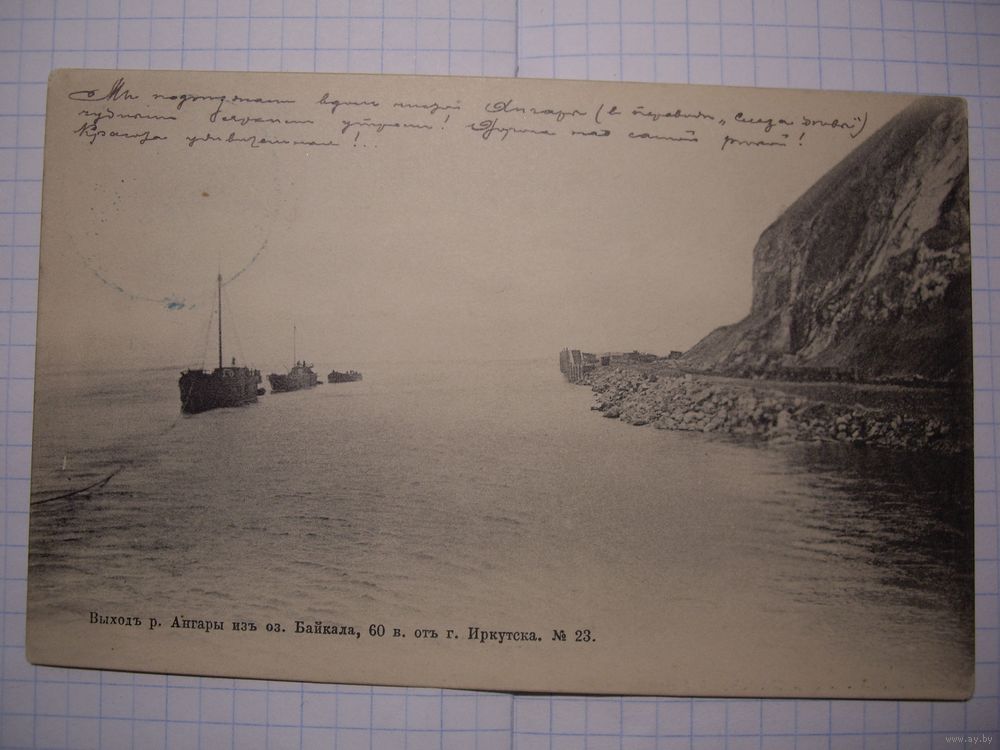 Мы подъезжаем вдоль чистой Ангары (в переводе „Слеза дивы“)
чудным ярким утром! Дорога над самой рекой!
Красота удивительная!!..
Выходъ р. Ангары изъ оз. Байкала, 60 в. отъ г. Иркутска. № 23.
www.ay.by